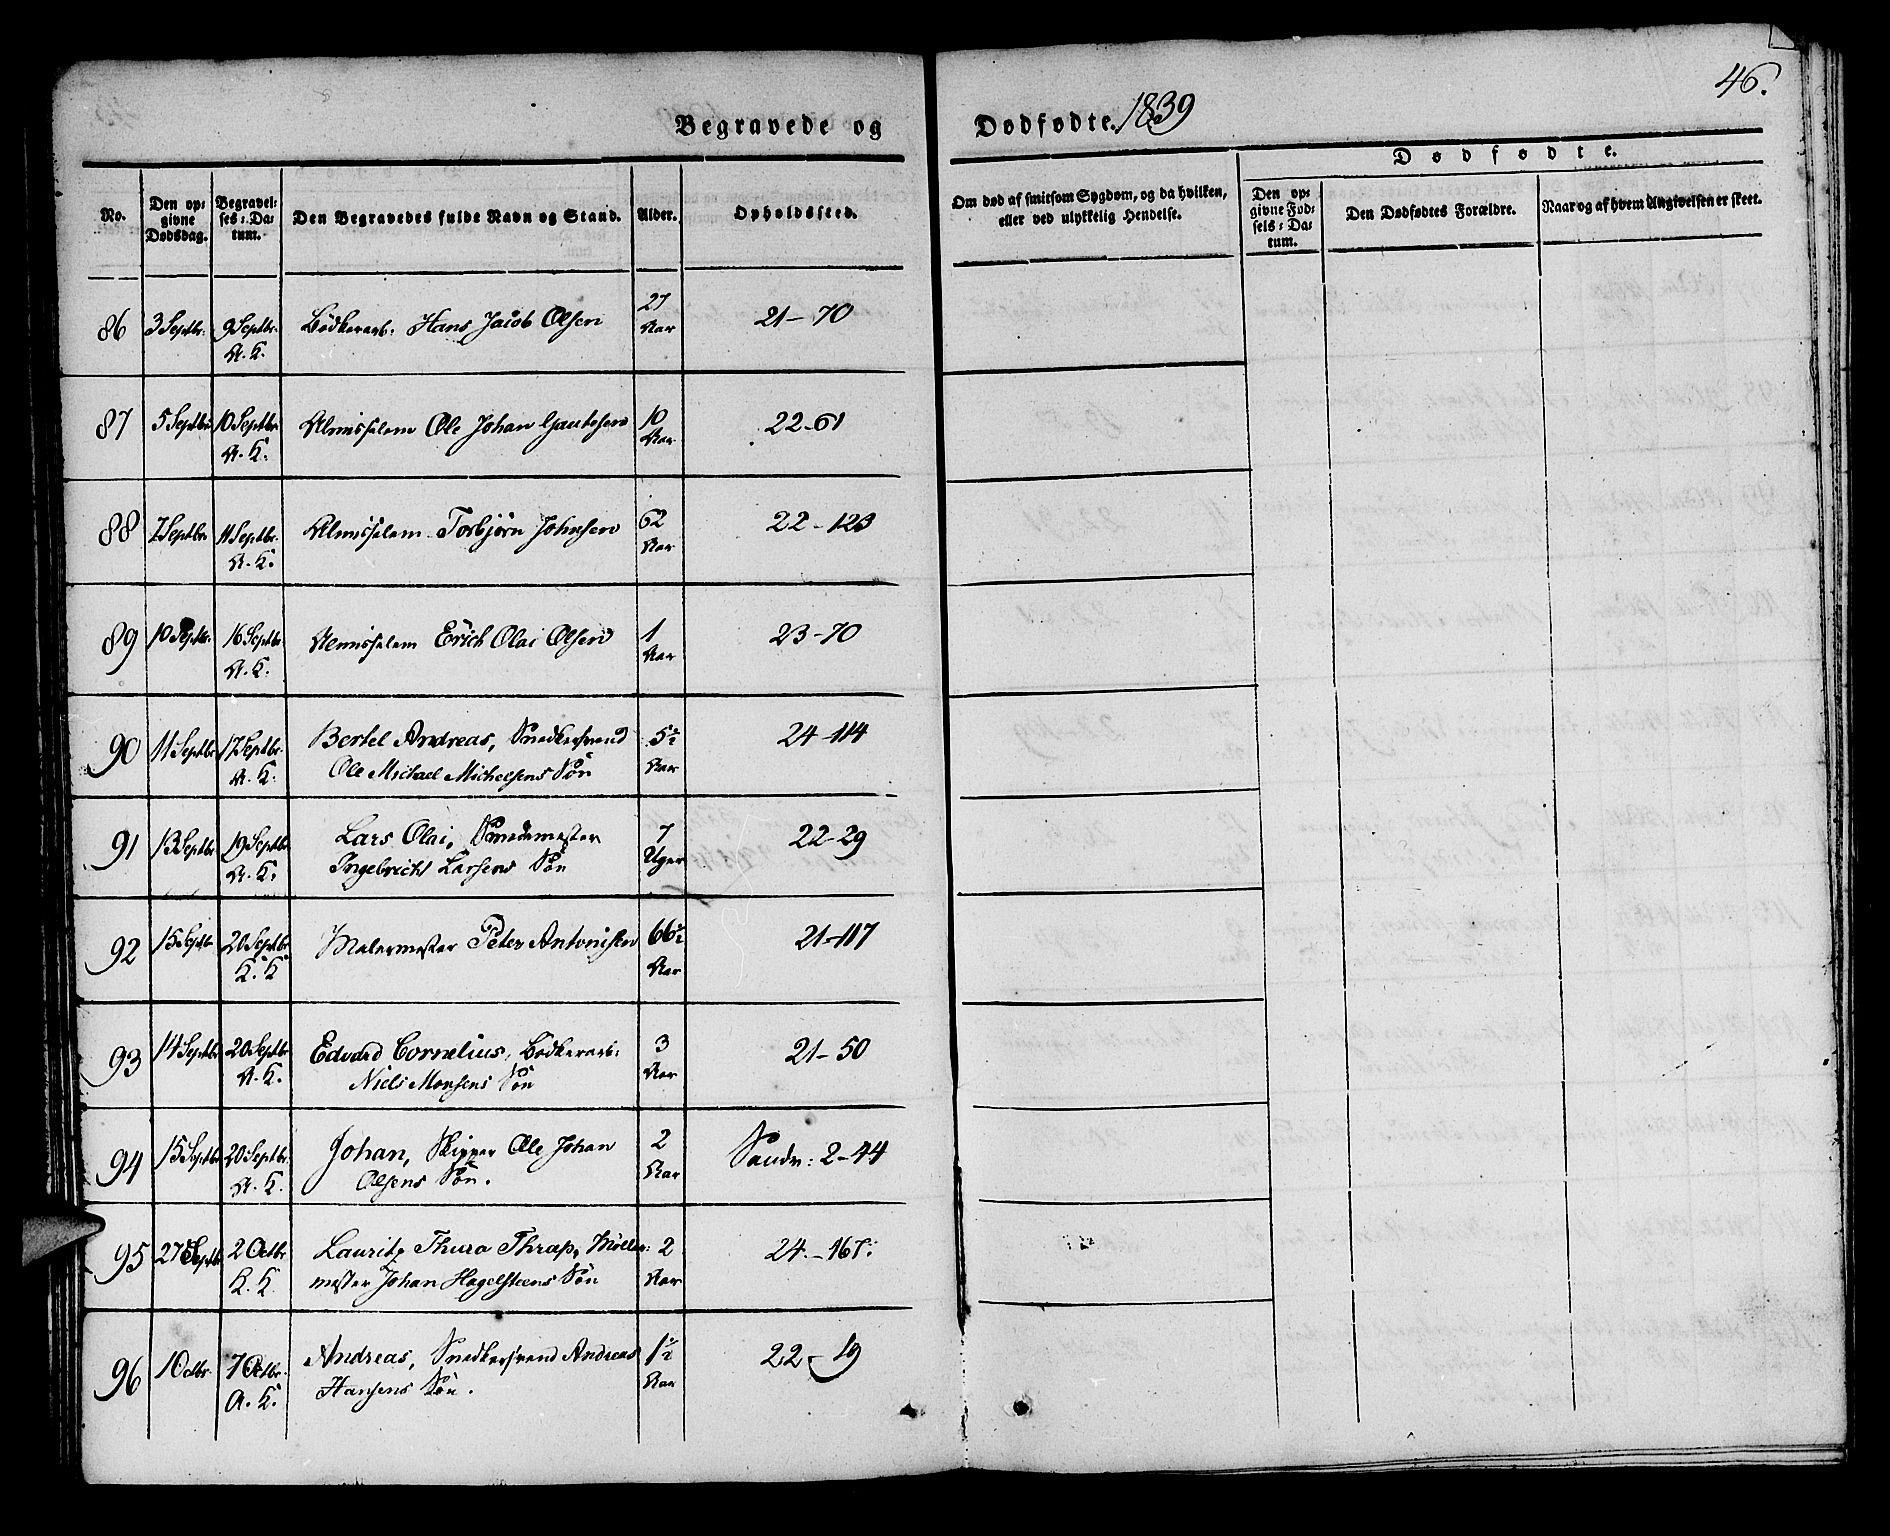 46.
Begravede og Dødfødte. 1839
Dødfødte.
No.
Den opgivne Dødsdag.
Begravelses-Datum.
Den Begravedes fulde Navn og Stand.
Alder.
Opholdssted.
Om død af smitsom Sygdom, og da hvilken, eller ved ulykkelig Hendelse.
Den opgivne Fødsels-Datum.
Den Dødfødtes Forældre.
Naar og af hvem Angivelsen er skeet.
86 3 Septbr. 9 Septbr. Bödkerarb: Hans Jacob Olsen 27 21-70
A. K. Aar
87 5 Septbr 10 Septbr Almisselem Ole Johan Gautesen 10 22-61
A. K. Aar
88 7 Septbr 11 Septbr. Almisselem Torbjörn Johnsen 62 22-123
A. K. Aar
89 10 Septbr. 16 Septbr. Almisselem Erich Olai Olsen 1 23-70
A. K. Aar
90 11 Septbr 17 Septbr. Bertel Andreas, Snedkersvend 5½ 24-114
A. K. Ole Michael Michelsens Sön Aar
91 13 Septbr 19 Septbr. Lars Olai, Smedemester 7 22-29
A. K. Ingebricht Larsens Sön Uger
92 15 Septbr 20 Septbr Malermester Peter Antonisen 66½ 21-117
K. K. Aar
93 14 Septbr 20 Septbr Edvard Cornelius, Bödkerarb: 3 21-50
A. K. Niels Monsens Sön Aar
94 15 Septbr 20 Septbr. Johan, Skipper Ole Johan 2 Sandv: 2-44
A. K. Olsens Sön. Aar
95 27 Septb 2 Octbr Lauritz Thura Thrap, Möller: 2 24.-167.
K. K. mester Johan Hagelsteens Sön Aar
96 1 Octbr. 7 Octbr. Andreas, Snedkersvend Andreas 1½ 22-19
A. K. Hansens Sön. Aar